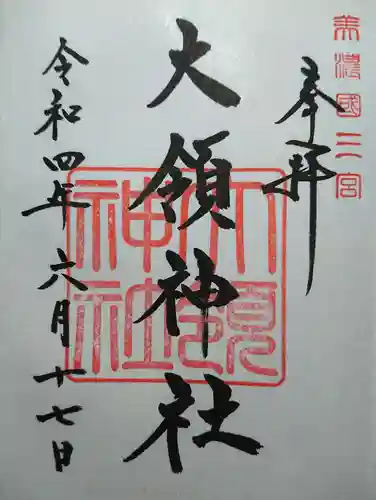 美濃國三宮
奉拝
大領神社
大領神社
令和四年六月十七日